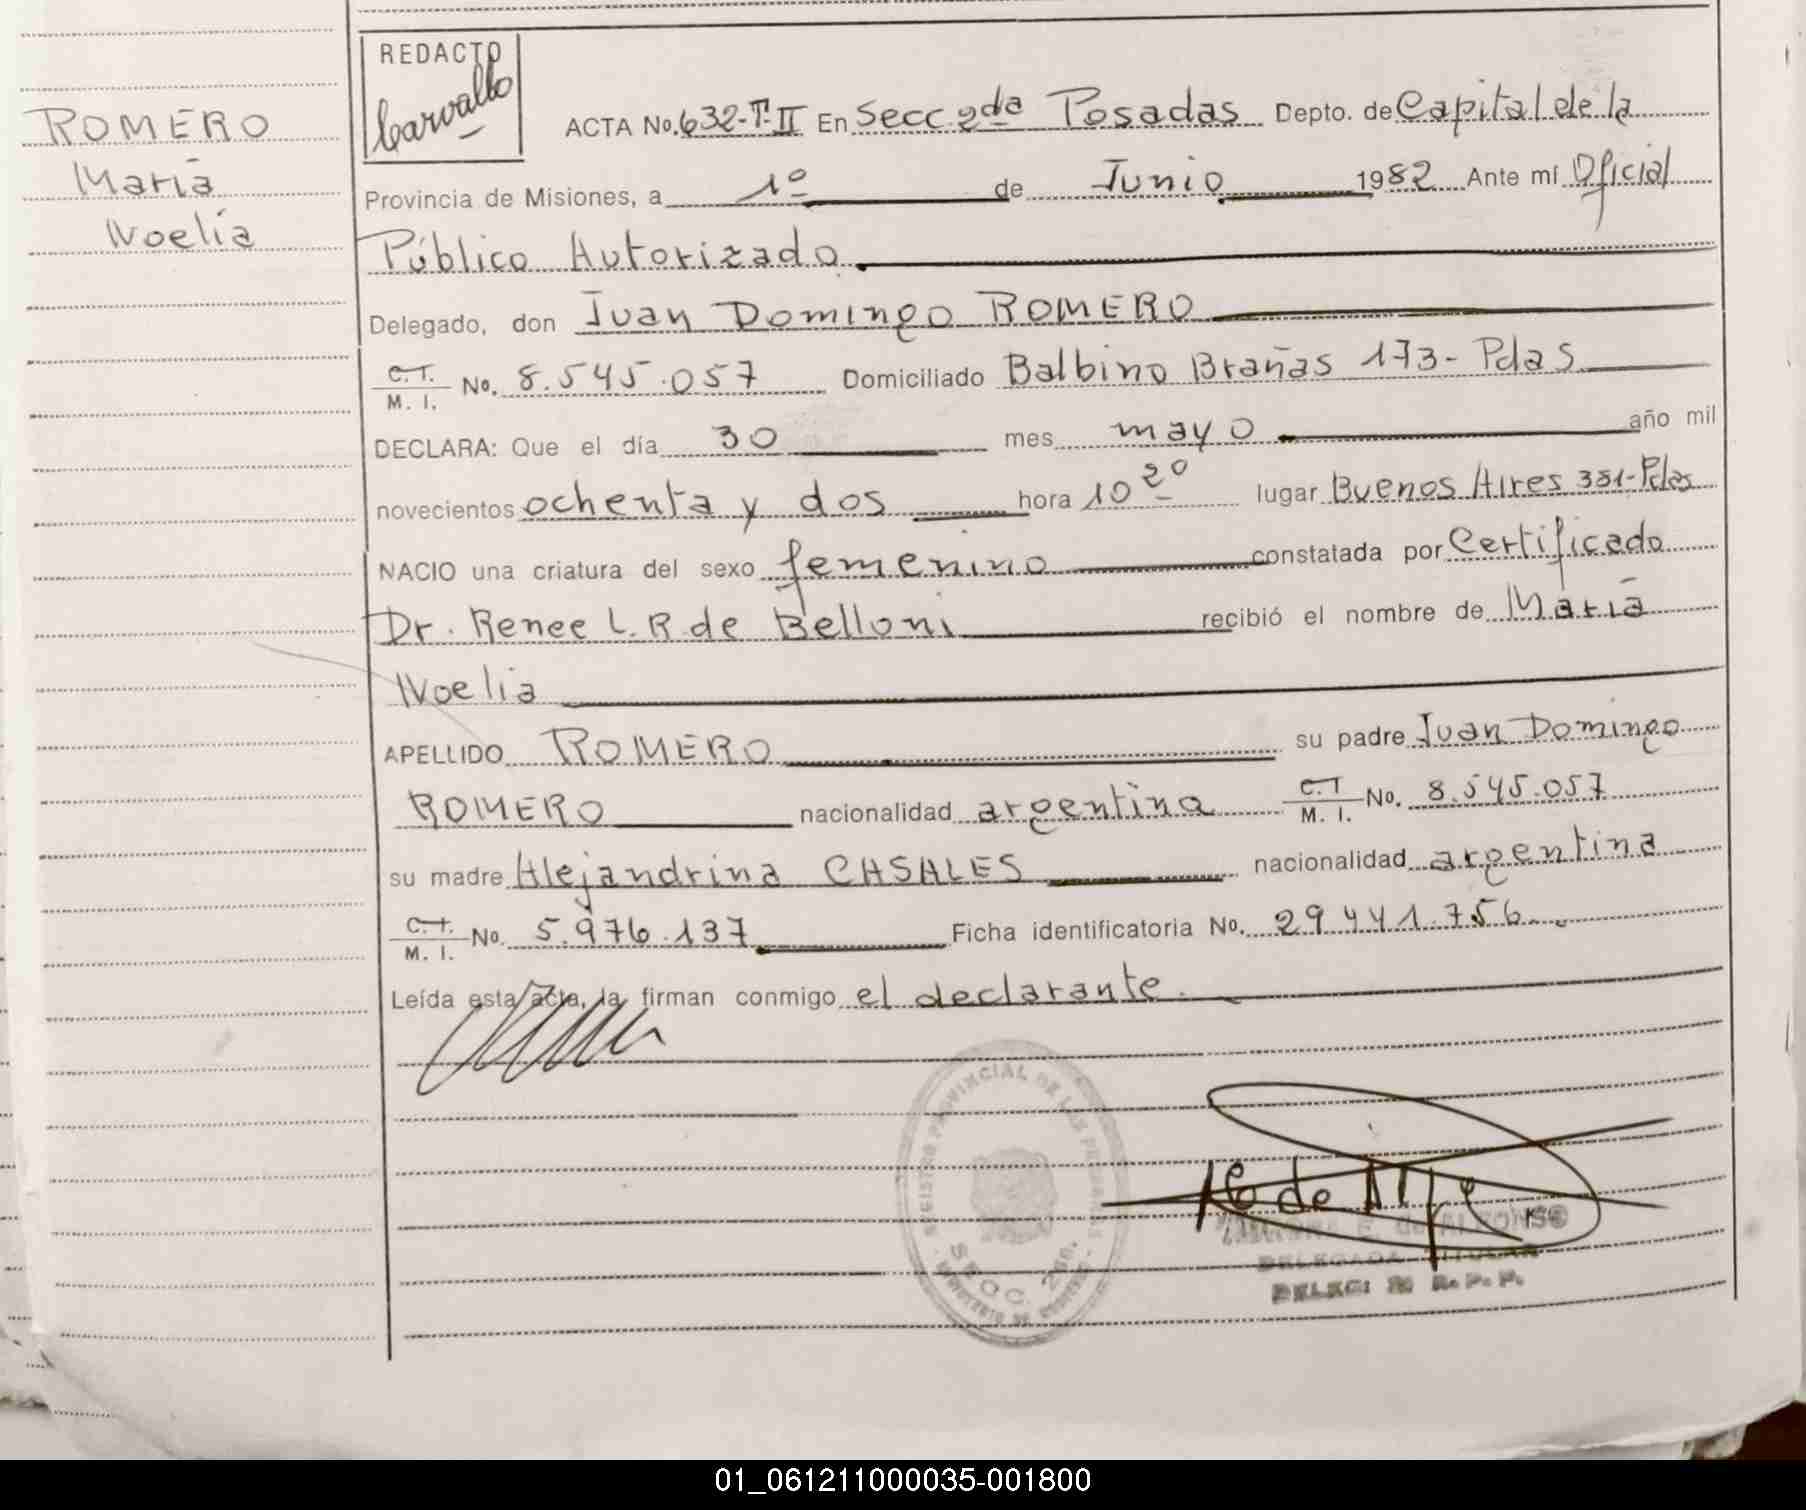 REDACTO
Carvallo
ROMERO
María
Noelia
ACTA No. 632-T-II En Secc 2da Posadas Depto. de Capital de la
Provincia de Misiones, a 1º de Junio 1982 Ante mí Oficial
Público Autorizado
Delegado, don Juan Domingo ROMERO
C.T. M. I. No. 8.545.057 Domiciliado Balbino Brañas 173- Pdas
DECLARA: Que el día 30 mes mayo año mil
novecientos ochenta y dos hora 10 20 lugar Buenos Aires 381-Pdas
NACIO una criatura del sexo femenino constatada por Certificado
Dr. Renee L.R. de Belloni recibió el nombre de María
Noelia
APELLIDO ROMERO su padre Juan Domingo
ROMERO nacionalidad argentina C.T M. I. No. 8.545.057
su madre Alejandrina CASALES nacionalidad argentina
C.T. M. I. No. 5.976.137 Ficha identificatoria No. 29.441.756
Leída esta acta, la firman conmigo el declarante.
REGISTRO PROVINCIAL DE LAS PERSONAS
SECC. 2da.
DELEGADA TITULAR
DELEG: R. P. P.
01_061211000035-001800